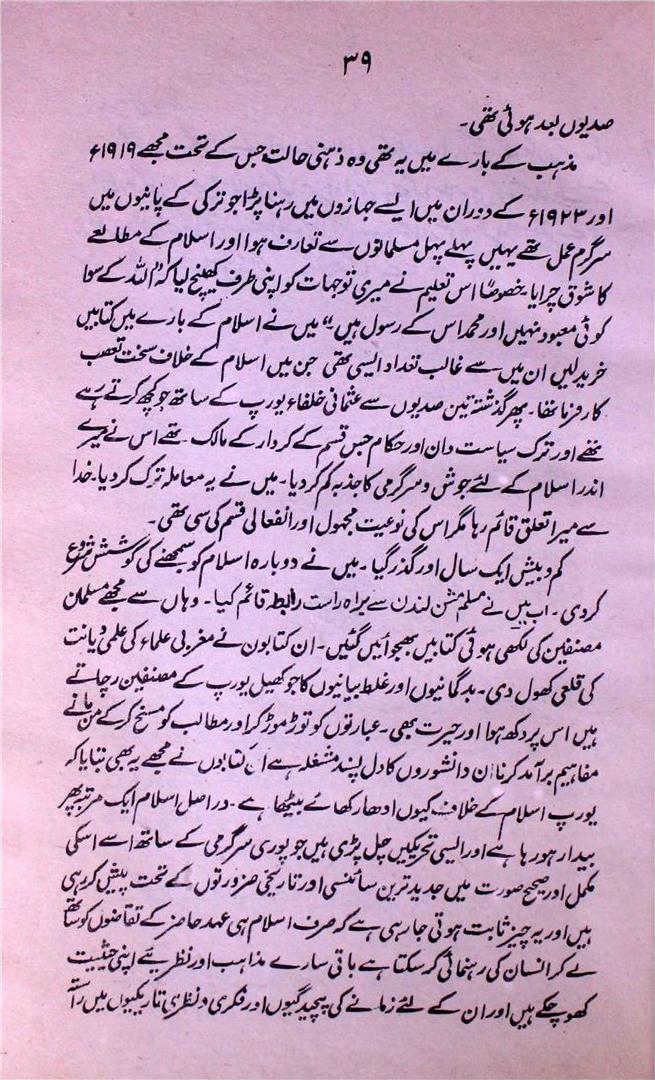 ۳۹
صدیوں بعد ہوئی تھی۔
مذہب کے بارے میں یہ تھی وہ ذہنی حالت جس کے تحت مجھے ۱۹۱۹ء
اور ۱۹۲۳ء کے دوران میں ایسے جہازوں میں رہنا پڑا جو ترکی کے پانیوں میں
سرگرم عمل تھے یہیں پہلے پہل مسلمانوں سے تعارف ہوا اور اسلام کے مطالعے
کا شوق چرایا۔ خصوصاً اس تعلیم نے میری توجہات کو اپنی طرف کھینچ لیا کہ "اللہ کے سوا
کوئی معبود نہیں اور محمد اس کے رسول ہیں"۔ میں نے اسلام کے بارے میں کتابیں
خرید لیں ان میں سے غالب تعداد ایسی تھی جن میں اسلام کے خلاف سخت تعصب
کارفرما تھا۔ پھر گذشتہ تین صدیوں سے عثمانی خلفاء یورپ کے ساتھ جو کچھ کرتے رہے
تھے اور ترک سیاست دان اور حکام جس قسم کے کردار کے مالک تھے اس نے میرے
اندر اسلام کے لئے جوش و سرگرمی کا جذبہ کم کر دیا۔ میں نے یہ معاملہ ترک کر دیا۔ خدا
سے میرا تعلق قائم رہا مگر اس کی نوعیت مجہول اور انفعالی قسم کی سی تھی۔
کم و بیش ایک سال اور گذر گیا۔ میں نے دوبارہ اسلام کو سمجھنے کی کوشش شروع
کر دی۔ اب میں نے مسلم مشن لندن سے براہ راست رابطہ قائم کیا۔ وہاں سے مجھے مسلمان
مصنفین کی لکھی ہوئی کتابیں بھجوائیں گئیں۔ ان کتابوں نے مغربی علماء کی علمی دیانت
کی قلعی کھول دی۔ بدگمانیوں اور غلط بیانیوں کا جو کھیل یورپ کے مصنفین رچاتے
ہیں اس پر دکھ ہوا اور حیرت بھی۔ عبارتوں کو توڑ موڑ کر اور مطالب کو مسخ کر کے من مانے
مفاہیم برآمد کرنا ان دانشوروں کا دل پسند مشغلہ ہے ان کتابوں نے مجھے یہ بھی بتایا کہ
یورپ اسلام کے خلاف کیوں ادھار کھائے بیٹھا ہے۔ دراصل اسلام ایک مرتبہ پھر
بیدار ہو رہا ہے اور ایسی تحریکیں چل پڑی ہیں جو پوری سرگرمی کے ساتھ اسے اسکی
مکمل اور صحیح صورت میں جدید ترین سائنسی اور تاریخی ضرورتوں کے تحت پیش کر رہی
ہیں اور یہ چیز ثابت ہوتی جا رہی ہے کہ صرف اسلام ہی عہد حاضر کے تقاضوں کو ساتھ
لے کر انسان کی رہنمائی کر سکتا ہے باقی سارے مذاہب اور نظریئے اپنی حیثیت
کھو چکے ہیں اور ان کے لئے زمانے کی پیچیدگیوں اور فکری و نظری تاریکیوں میں راستہ